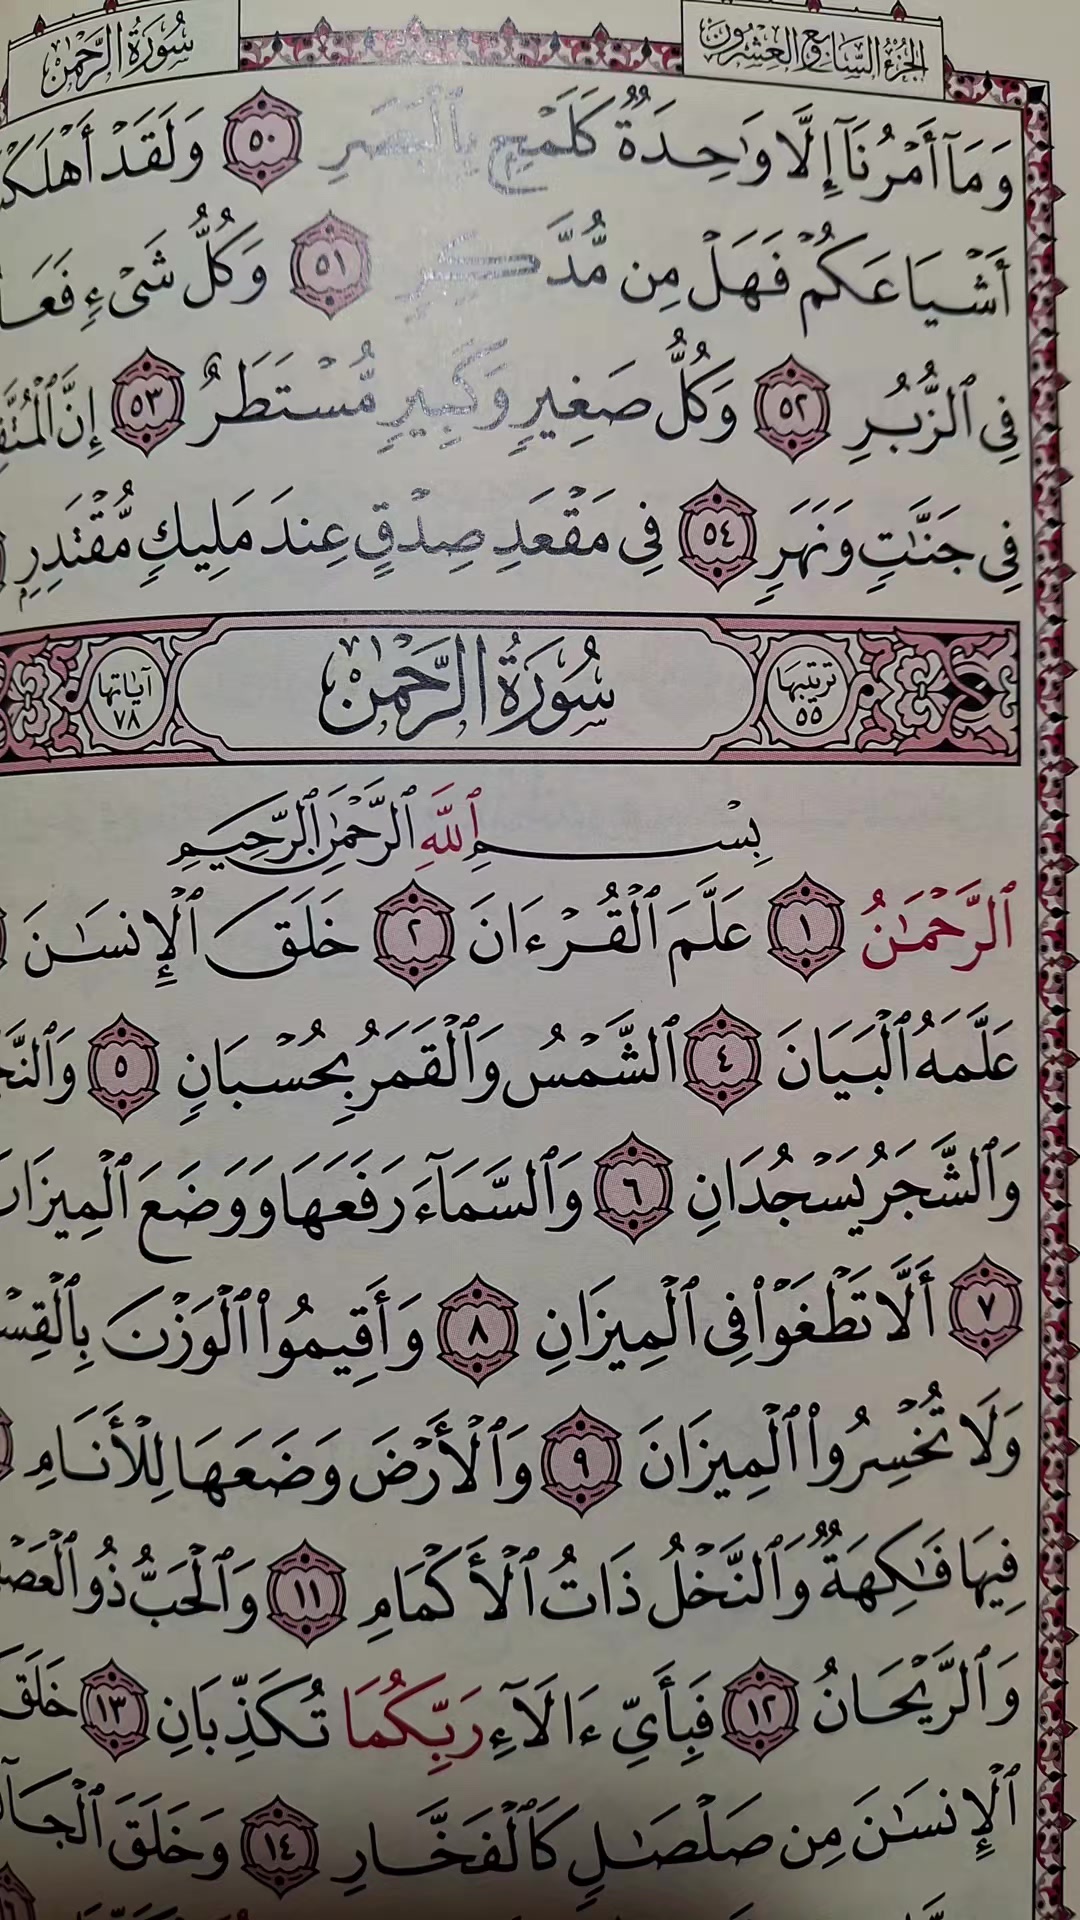 الجزء السابع والعشرون
سورة الرحمن
وَمَآ أَمْرُنَآ إِلَّا وَٰحِدَةٌ كَلَمْحٍۭ بِٱلْبَصَرِ ٥٠ وَلَقَدْ
أَشْيَاعَكُمْ فَهَلْ مِن مُّدَّكِرٍ ٥١ وَكُلُّ شَىْءٍ
فِى ٱلزُّبُرِ ٥٢ وَكُلُّ صَغِيرٍ وَكَبِيرٍ مُّسْتَطَرٌ ٥٣ إِنَّ
فِى جَنَّٰتٍ وَنَهَرٍ ٥٤ فِى مَقْعَدِ صِدْقٍ عِندَ مَلِيكٍ مُّقْتَدِرٍۭ
ترتيبها ٥٥
سُورَةُ الرَّحْمٰن
آياتها ٧٨
بِسْمِ ٱللَّهِ ٱلرَّحْمَٰنِ ٱلرَّحِيمِ
ٱلرَّحْمَٰنُ ١ عَلَّمَ ٱلْقُرْءَانَ ٢ خَلَقَ ٱلْإِنسَٰنَ
عَلَّمَهُ ٱلْبَيَانَ ٤ ٱلشَّمْسُ وَٱلْقَمَرُ بِحُسْبَانٍ ٥
وَٱلشَّجَرُ يَسْجُدَانِ ٦ وَٱلسَّمَآءَ رَفَعَهَا وَوَضَعَ ٱلْمِيزَانَ
٧ أَلَّا تَطْغَوْا۟ فِى ٱلْمِيزَانِ ٨ وَأَقِيمُوا۟ ٱلْوَزْنَ
وَلَا تُخْسِرُوا۟ ٱلْمِيزَانَ ٩ وَٱلْأَرْضَ وَضَعَهَا لِلْأَنَامِ
فِيهَا فَٰكِهَةٌ وَٱلنَّخْلُ ذَاتُ ٱلْأَكْمَامِ ١١ وَٱلْحَبُّ ذُو
وَٱلرَّيْحَانُ ١٢ فَبِأَىِّ ءَالَآءِ رَبِّكُمَا تُكَذِّبَانِ ١٣ خَلَقَ
ٱلْإِنسَٰنَ مِن صَلْصَٰلٍ كَٱلْفَخَّارِ ١٤ وَخَلَقَ